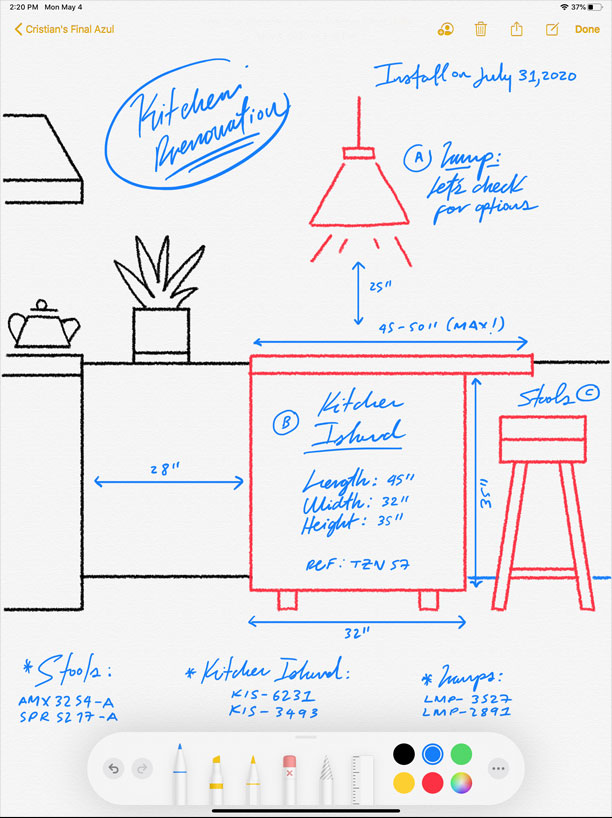 2:20 PM Mon May 4
37%
Cristian's Final Azul
Done
Install on July 31, 2020
Kitchen
Renovation
A Lamp:
Let's check
for options
25"
45-50" (MAX!)
Stools C
B Kitchen
Island
28"
Length: 45"
Width: 32"
Height: 35"
35"
REF: TZN 57
32"
* Stools:
AMX3254-A
SPR 5277-A
* Kitchen Island:
KIS-6231
KIS-3493
* Lamps:
LMP-3527
LMP-2891